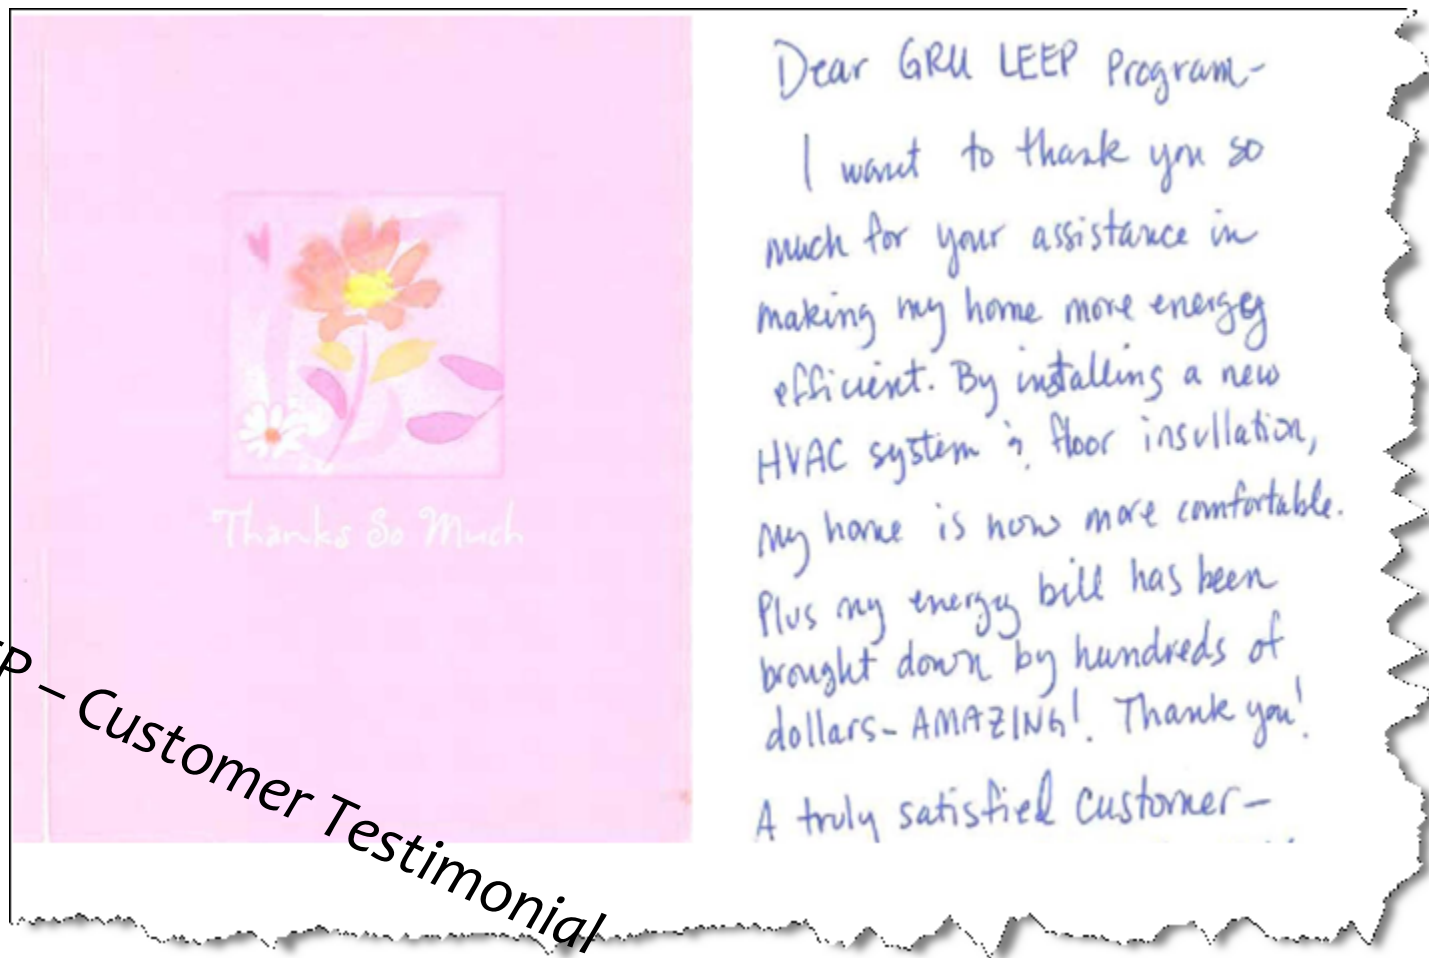 Thanks So Much
Dear GRU LEEP Program-
I want to thank you so
much for your assistance in
making my home more energy
efficient. By installing a new
HVAC system & floor insullation,
my home is now more comfortable.
Plus my energy bill has been
brought down by hundreds of
dollars- AMAZING! Thank you!
A truly satisfied customer-
P – Customer Testimonial